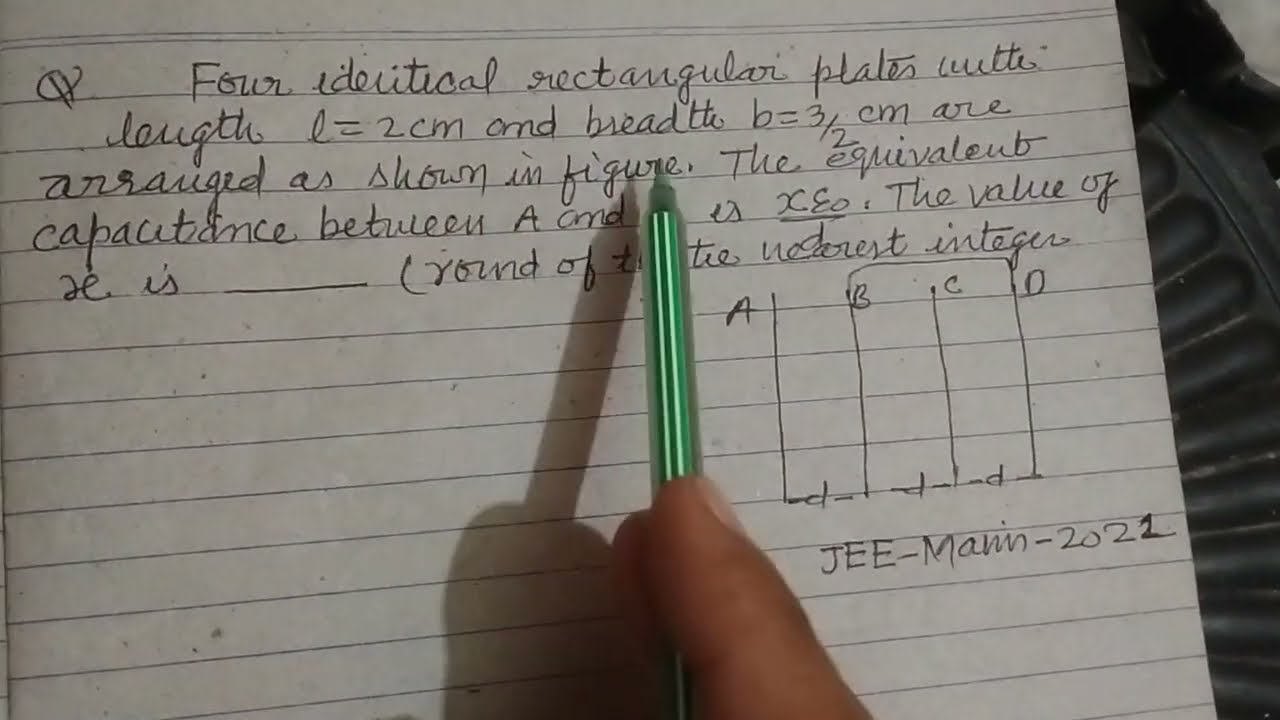 Q Four identical rectangular plates with
length l = 2 cm and breadth b = 3/2 cm are
arranged as shown in figure. The equivalent
capacitance between A and is xε₀. The value of
x is ______ (round of the nearest integer
A B C D
d d d
JEE-Main-2021